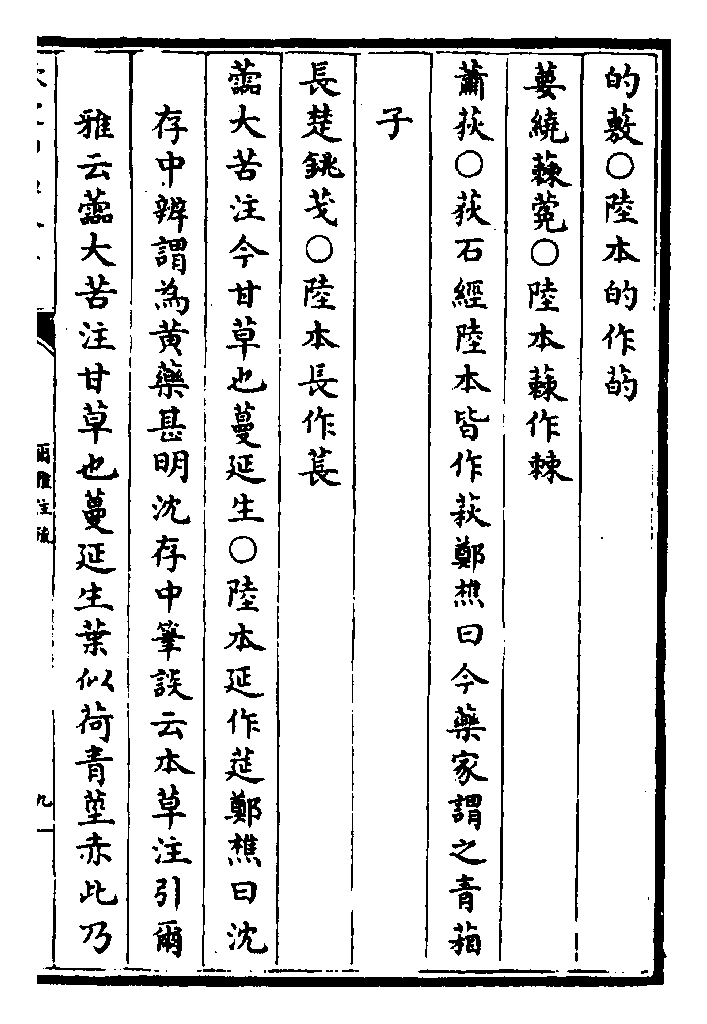 的薂○陸本的作菂
葽繞蕀蒬○陸本蕀作棘
蕭荻○荻石經陸本皆作萩鄭樵曰今藥家謂之青葙
子
長楚銚芅○陸本長作萇
蘦大苦注今甘草也蔓延生○陸本延作莚鄭樵曰沈
存中辨謂為黄藥甚明沈存中筆談云本草注引爾
雅云蘦大苦注甘草也蔓延生葉似荷青莖赤此乃
爾雅注疏
九